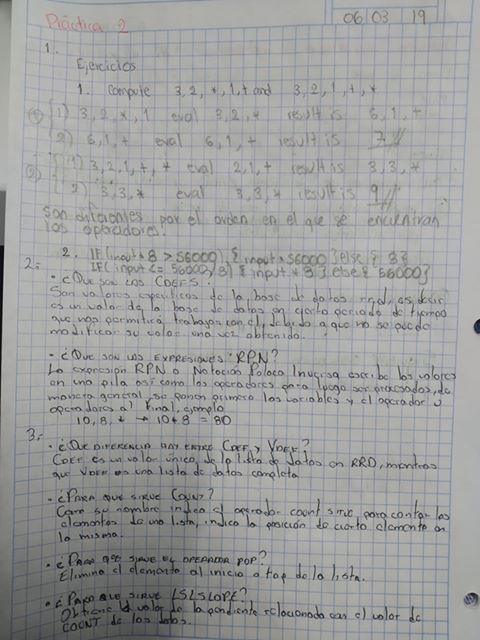 Práctica 2
06 03 19
1.
Ejercicios
1. Compute 3, 2, *, 1, + and 3, 2, 1, +, *
1) 3, 2, *, 1 eval 3, 2, * result is 6, 1, +
2) 6, 1, + eval 6, 1, + result is 7 //
1) 3, 2, 1, +, * eval 2, 1, + result is 3, 3, *
2) 3, 3, * eval 3, 3, * result is 9 //
Son diferentes por el orden en el que se encuentran
los operadores.
2. IF(input * 8 > 56000), { input > 56000 } else { 8 }
IF( input <= 56000/8) { input * 8 } else { 56000 }
2.-
· ¿Que son los CDEFS.
Son valores especificos de la base de datos rrd, es decir
es un valor de la base de datos en cierto periodo de tiempo
que nos permitira trabajar con el, debido a que no se puede
modificar su valor una vez obtenido.
· ¿Que son las expresiones RPN?
La expresión RPN o Notación Polaca Inversa escribe los valores
en una pila asi como los operadores para luego ser procesados, de
manera general, se ponen primero las variables y el operador u
operadores al final, ejemplo
10, 8, * → 10 * 8 = 80
3.-
· ¿Que diferencia hay entre CDEF y VDEF?
CDEF es un valor único, de la lista de datos en RRD, mientras
que VDEF es una lista de datos completa
· ¿Para que sirve Count?
Como su nombre indica el operador count sirve para contar los
elementos de una lista, indica la posición de cierto elemento en
la misma.
· ¿Para que sirve el operador pop?
Elimina el elemento al inicio o top de la lista.
· ¿Para que sirve LSLSLOPE?
Obtiene el valor de la pendiente relacionada con el valor de
COUNT de los datos.